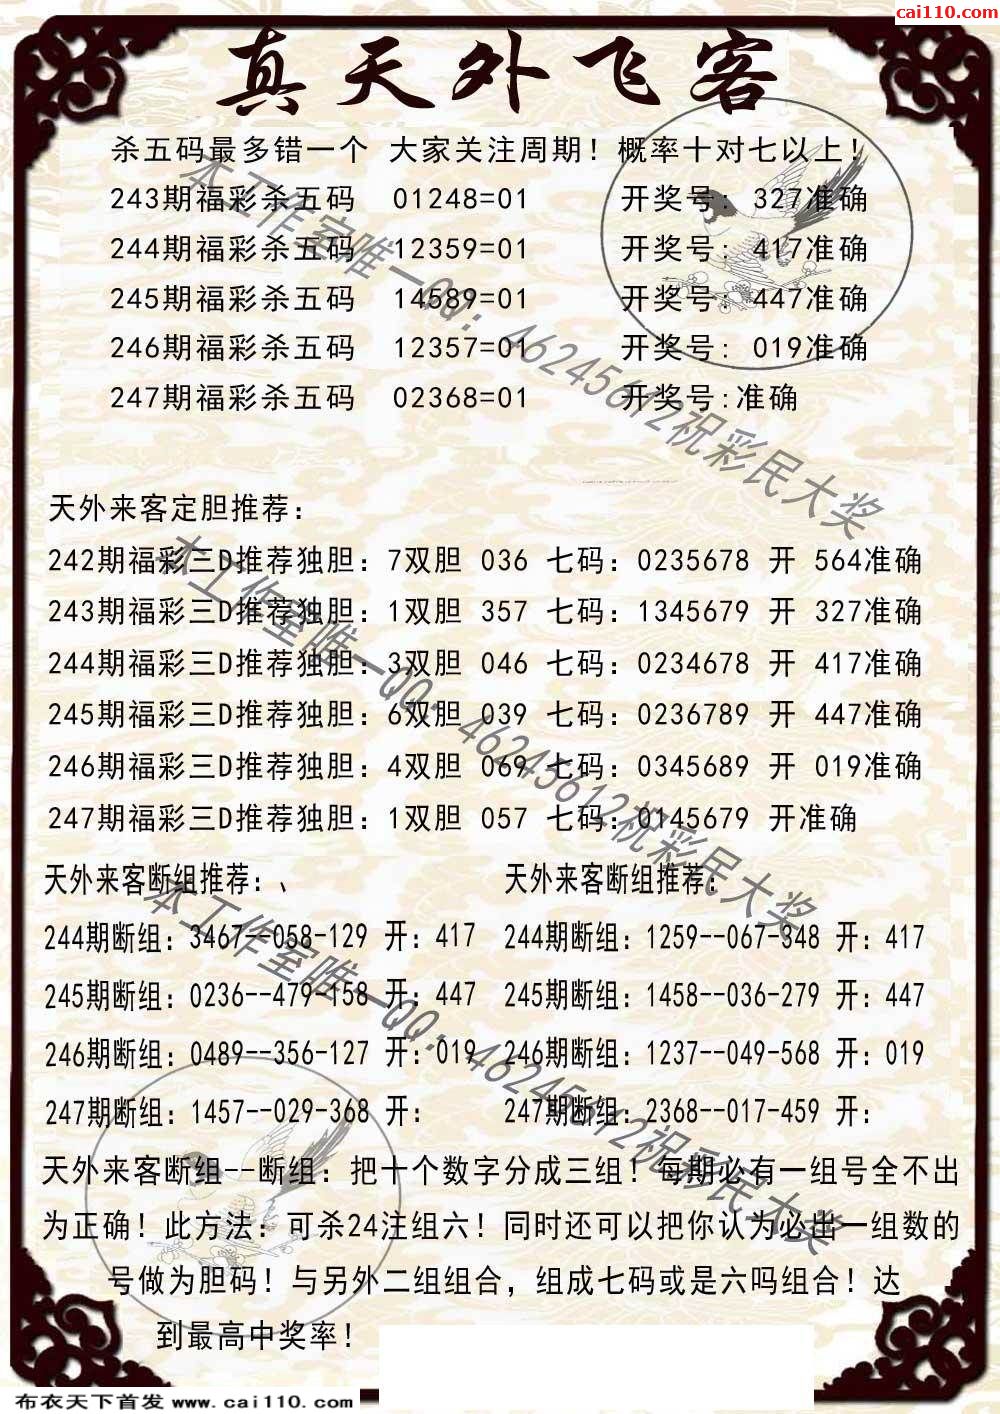 cai110.com
真天外飞客
杀五码最多错一个 大家关注周期！概率十对七以上！
243期福彩杀五码 01248=01 开奖号: 327准确
244期福彩杀五码 12359=01 开奖号: 417准确
245期福彩杀五码 14589=01 开奖号: 447准确
246期福彩杀五码 12357=01 开奖号: 019准确
247期福彩杀五码 02368=01 开奖号:准确
天外来客定胆推荐：
242期福彩三D推荐独胆：7双胆 036 七码：0235678 开 564准确
243期福彩三D推荐独胆：1双胆 357 七码：1345679 开 327准确
244期福彩三D推荐独胆：3双胆 046 七码：0234678 开 417准确
245期福彩三D推荐独胆：6双胆 039 七码：0236789 开 447准确
246期福彩三D推荐独胆：4双胆 069 七码：0345689 开 019准确
247期福彩三D推荐独胆：1双胆 057 七码：0145679 开准确
天外来客断组推荐：、 天外来客断组推荐：
244期断组：3467--058-129 开：417 244期断组：1259--067-348 开：417
245期断组：0236--479-158 开：447 245期断组：1458--036-279 开：447
246期断组：0489--356-127 开：019 246期断组：1237--049-568 开：019
247期断组：1457--029-368 开： 247期断组：2368--017-459 开：
天外来客断组--断组：把十个数字分成三组！每期必有一组号全不出
为正确！此方法：可杀24注组六！同时还可以把你认为必出一组数的
号做为胆码！与另外二组组合，组成七码或是六吗组合！达
到最高中奖率！
本工作室唯一QQ：46245612祝彩民大奖
本工作室唯一QQ：46245612祝彩民大奖
本工作室唯一QQ：46245612祝彩民大奖
布衣天下首发 www.cai110.com